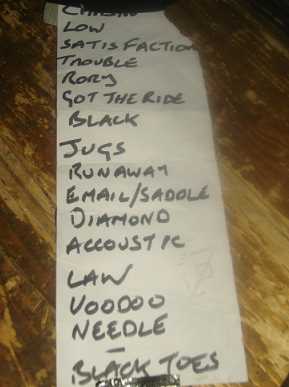 LOW
SATISFACTION
TROUBLE
RORY
GOT THE RIDE
BLACK
JUGS
RUNAWAY
EMAIL/SADDLE
DIAMOND
ACCOUSTIC
LAW
VOODOO
NEEDLE
–
BLACK TOES